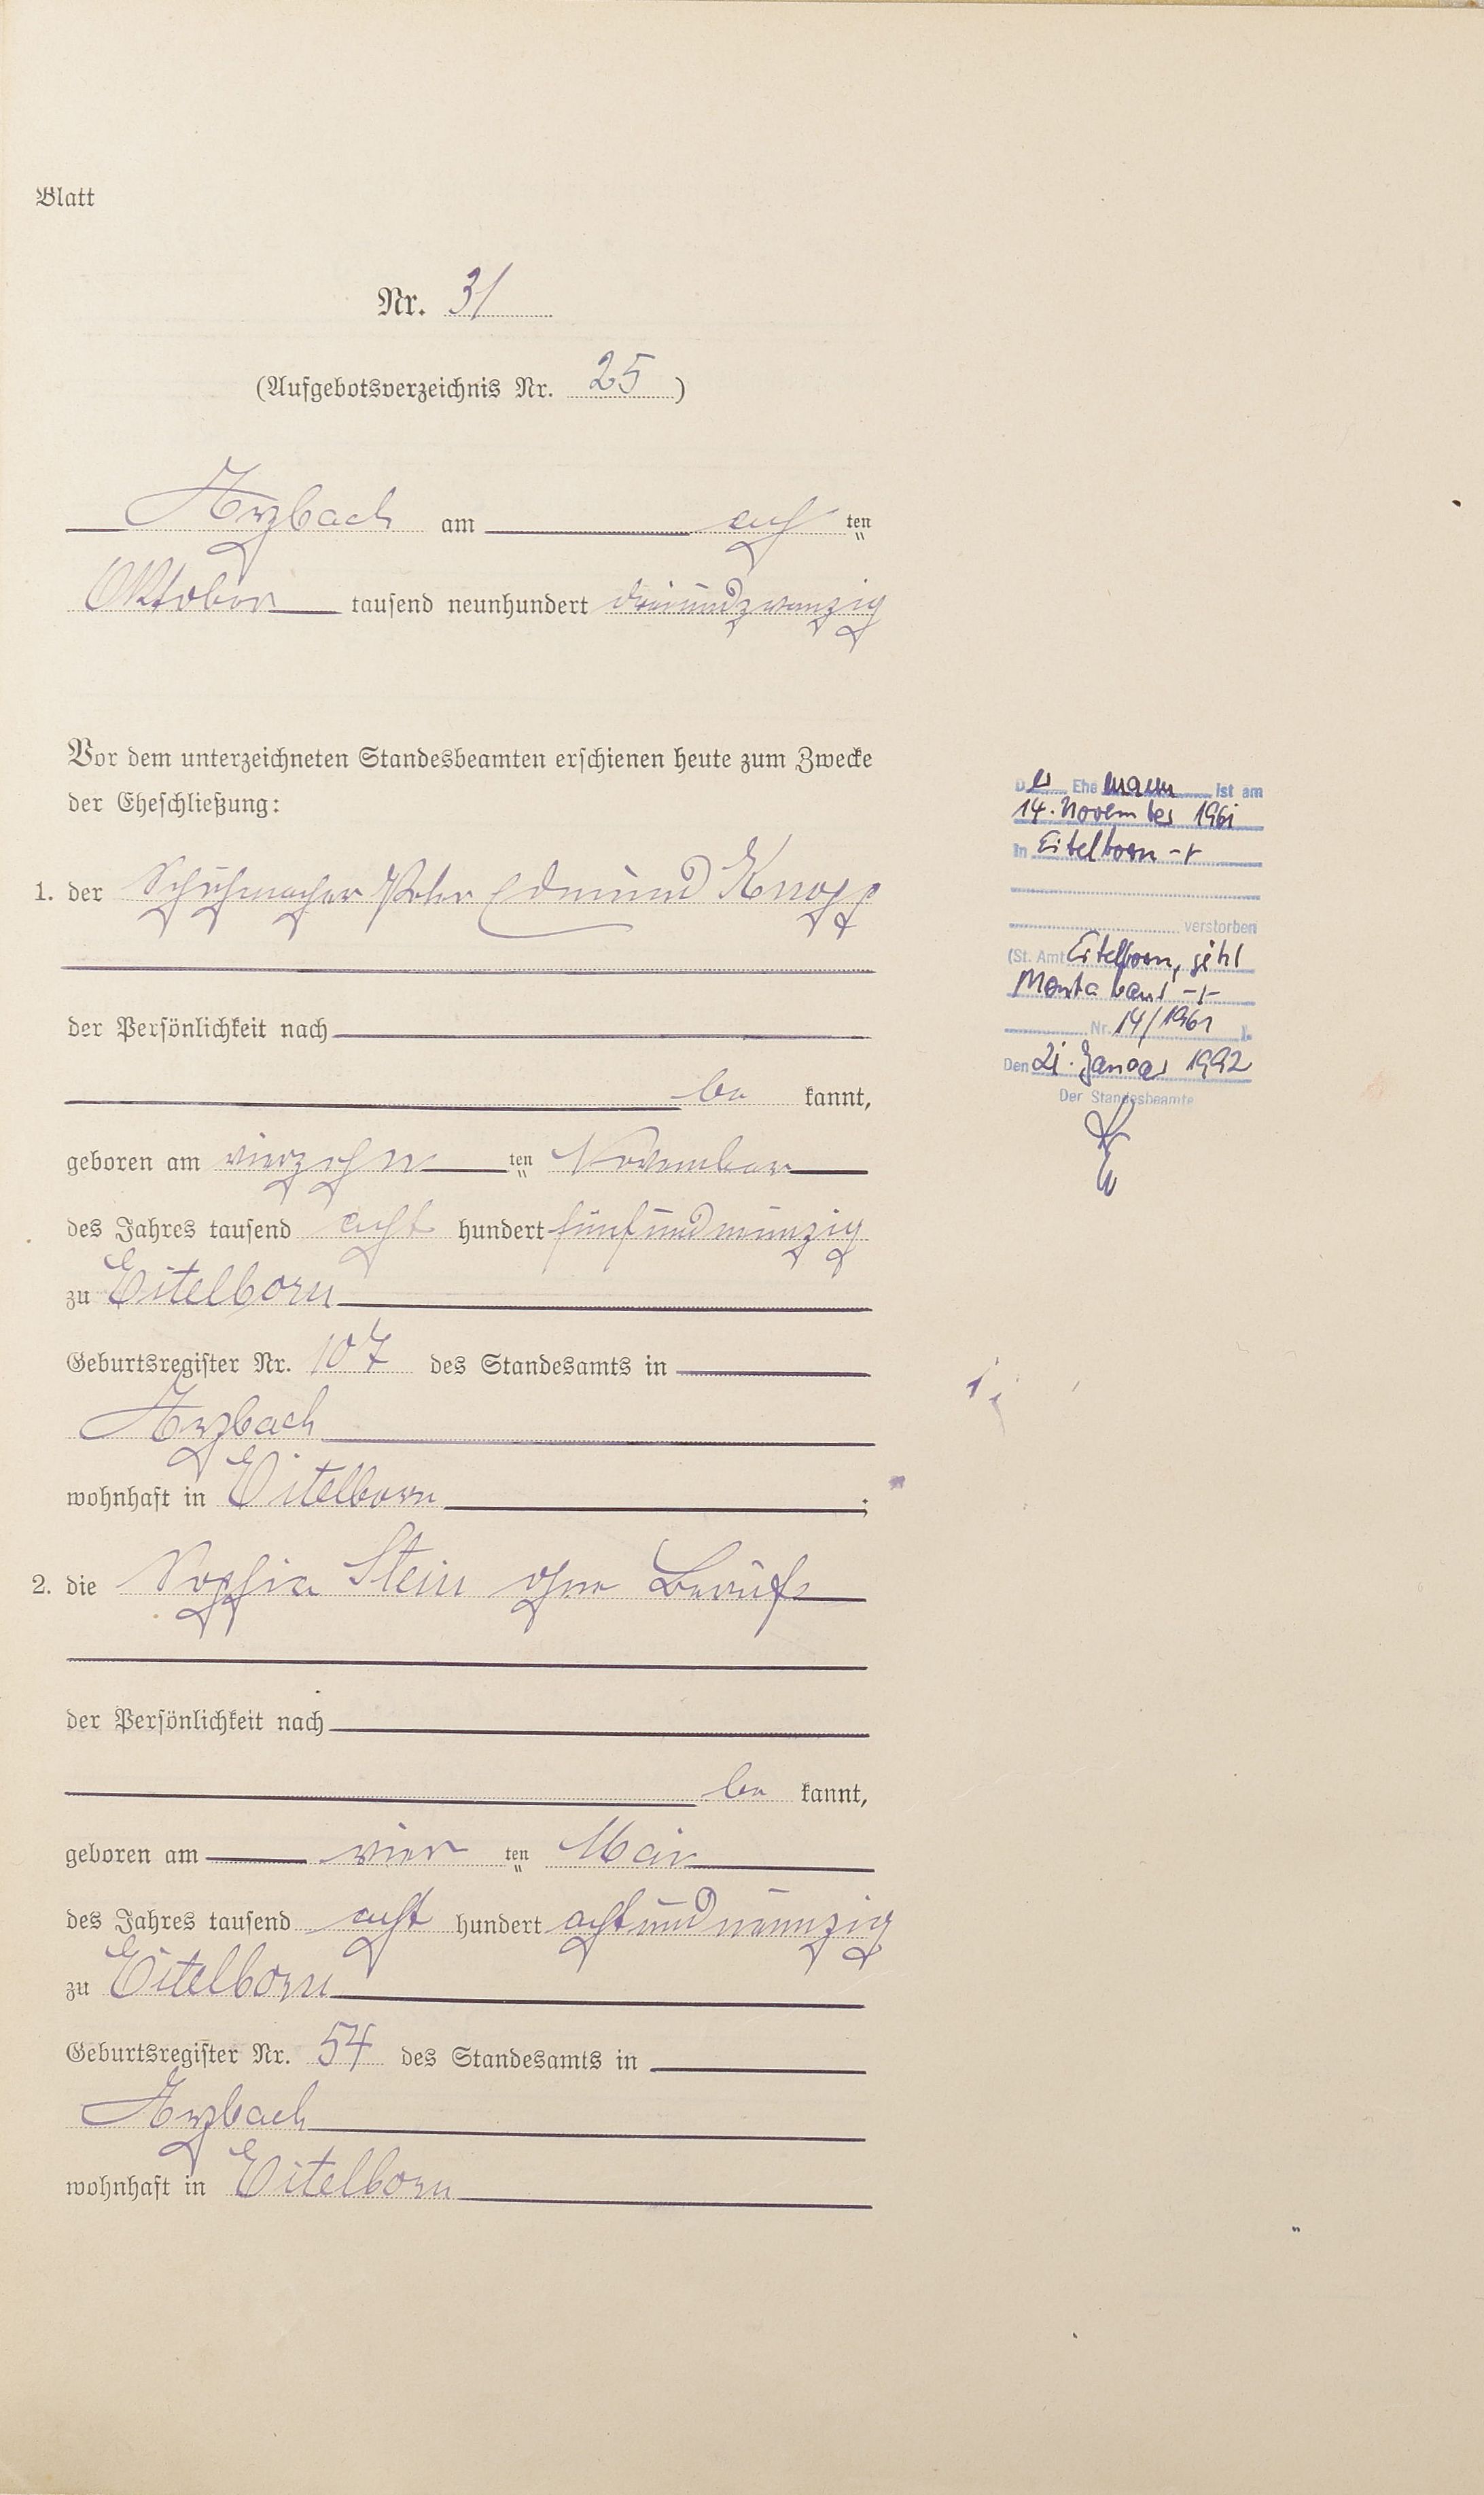 Blatt
Nr. 31
(Aufgebotsverzeichnis Nr. 25)
Arzbach am ach ten
Oktober tausend neunhundert dreiundzwanzig
Vor dem unterzeichneten Standesbeamten erschienen heute zum Zwecke
der Eheschließung:
1. der Schuhmacher Peter Edmund Knopp
der Persönlichkeit nach
be kannt,
geboren am vierzehn ten November
des Jahres tausend acht hundert fünfundneunzig
zu Eitelborn
Geburtsregister Nr. 107 des Standesamts in
Arzbach
wohnhaft in Eitelborn ;
2. die Sophia Stein ohne Beruf
der Persönlichkeit nach
be kannt,
geboren am vier ten Mai
des Jahres tausend acht hundert achtundneunzig
zu Eitelborn
Geburtsregister Nr. 54 des Standesamts in
Arzbach
wohnhaft in Eitelborn
Der Ehemann ist am
14. November 1961
in Eitelborn
verstorben
(St. Amt Eitelborn, jetzt
Montabaur
Nr. 14/1961 ).
Den 21. Januar 1992
Der Standesbeamte